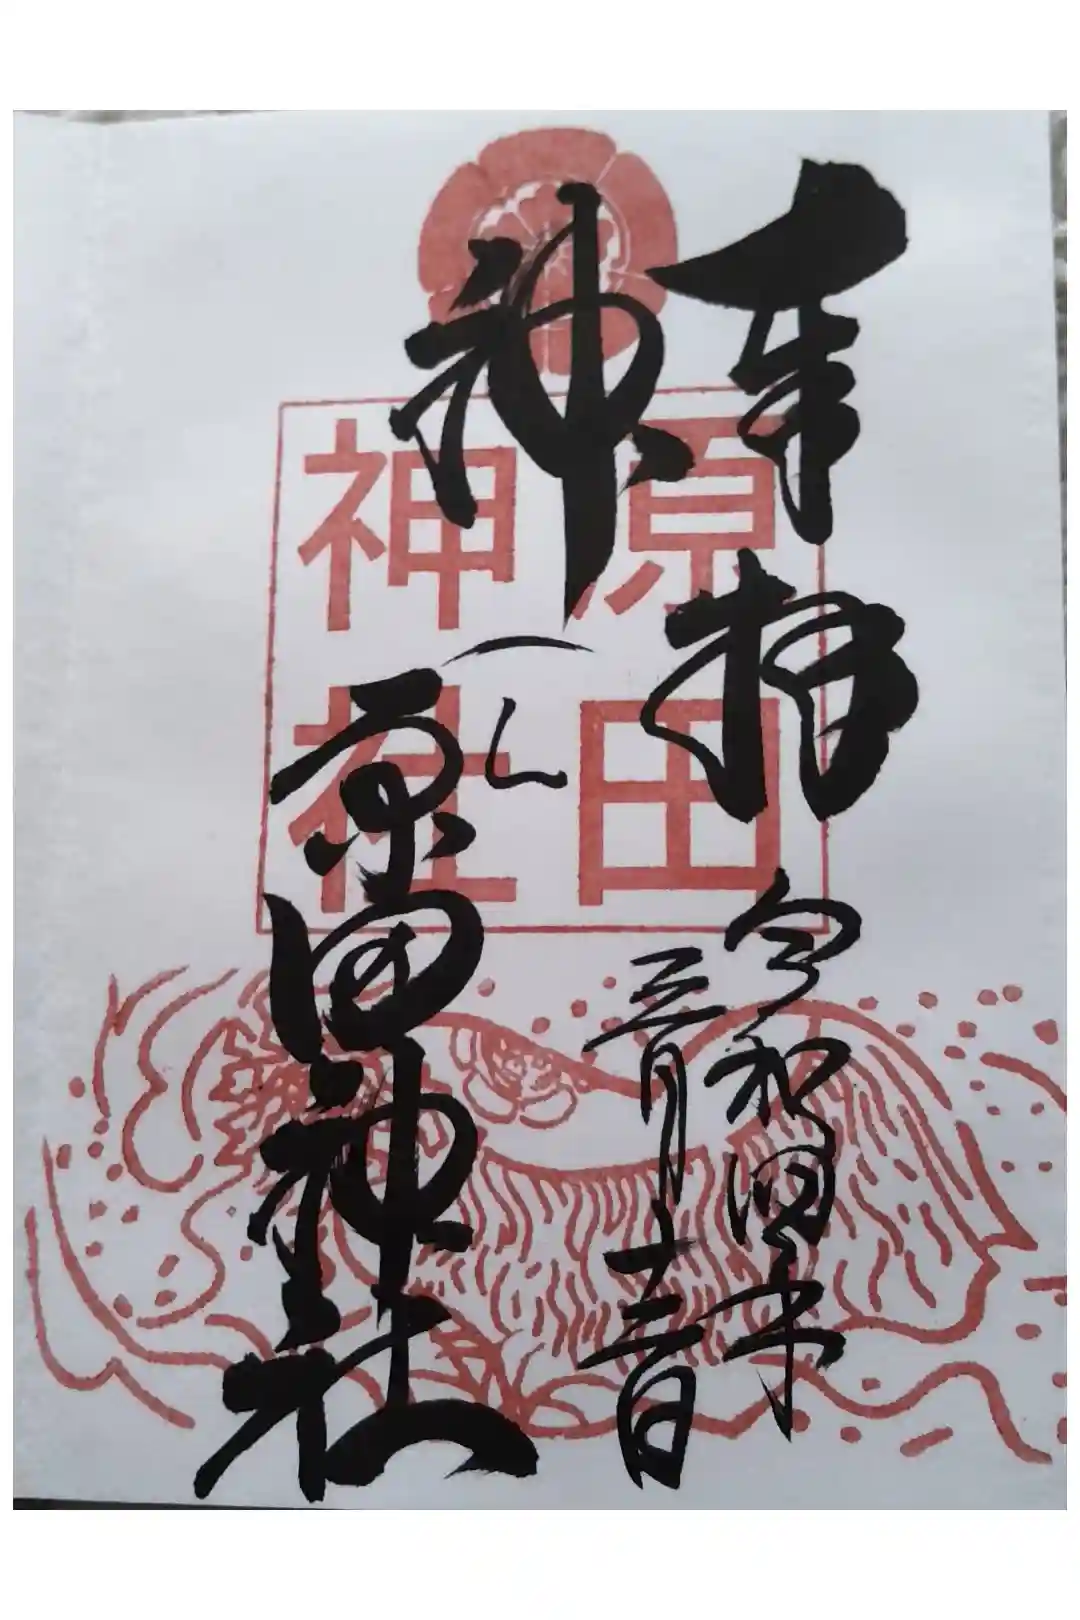 奉拝
令和四年
三月十三日
神
原田神社
原田
神社